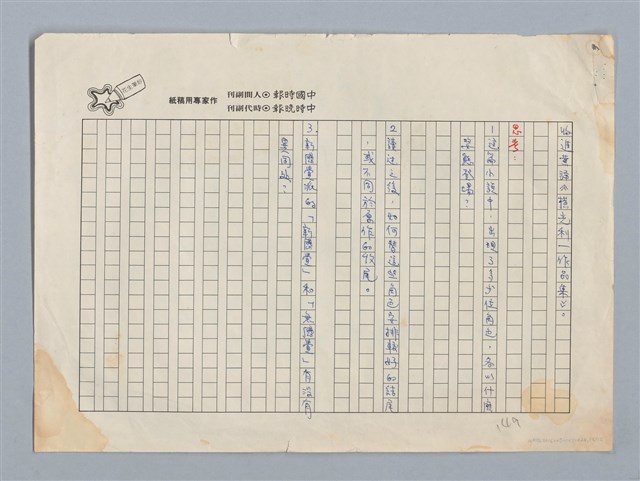 中國時報⊙人間副刊
中時晚報⊙時代副刊
作家專用稿紙
收進黃錦《橫光利一作品集》。
思考：
1 這篇小說中，出現了多少位角色，各以什麼
姿態登場？
2 讀過之後，如何替這些角色安排較好的結尾
，或不同於舊作的收尾。
3. 新感覺派的「新感覺」和「無感覺」有沒有
異同處？
149